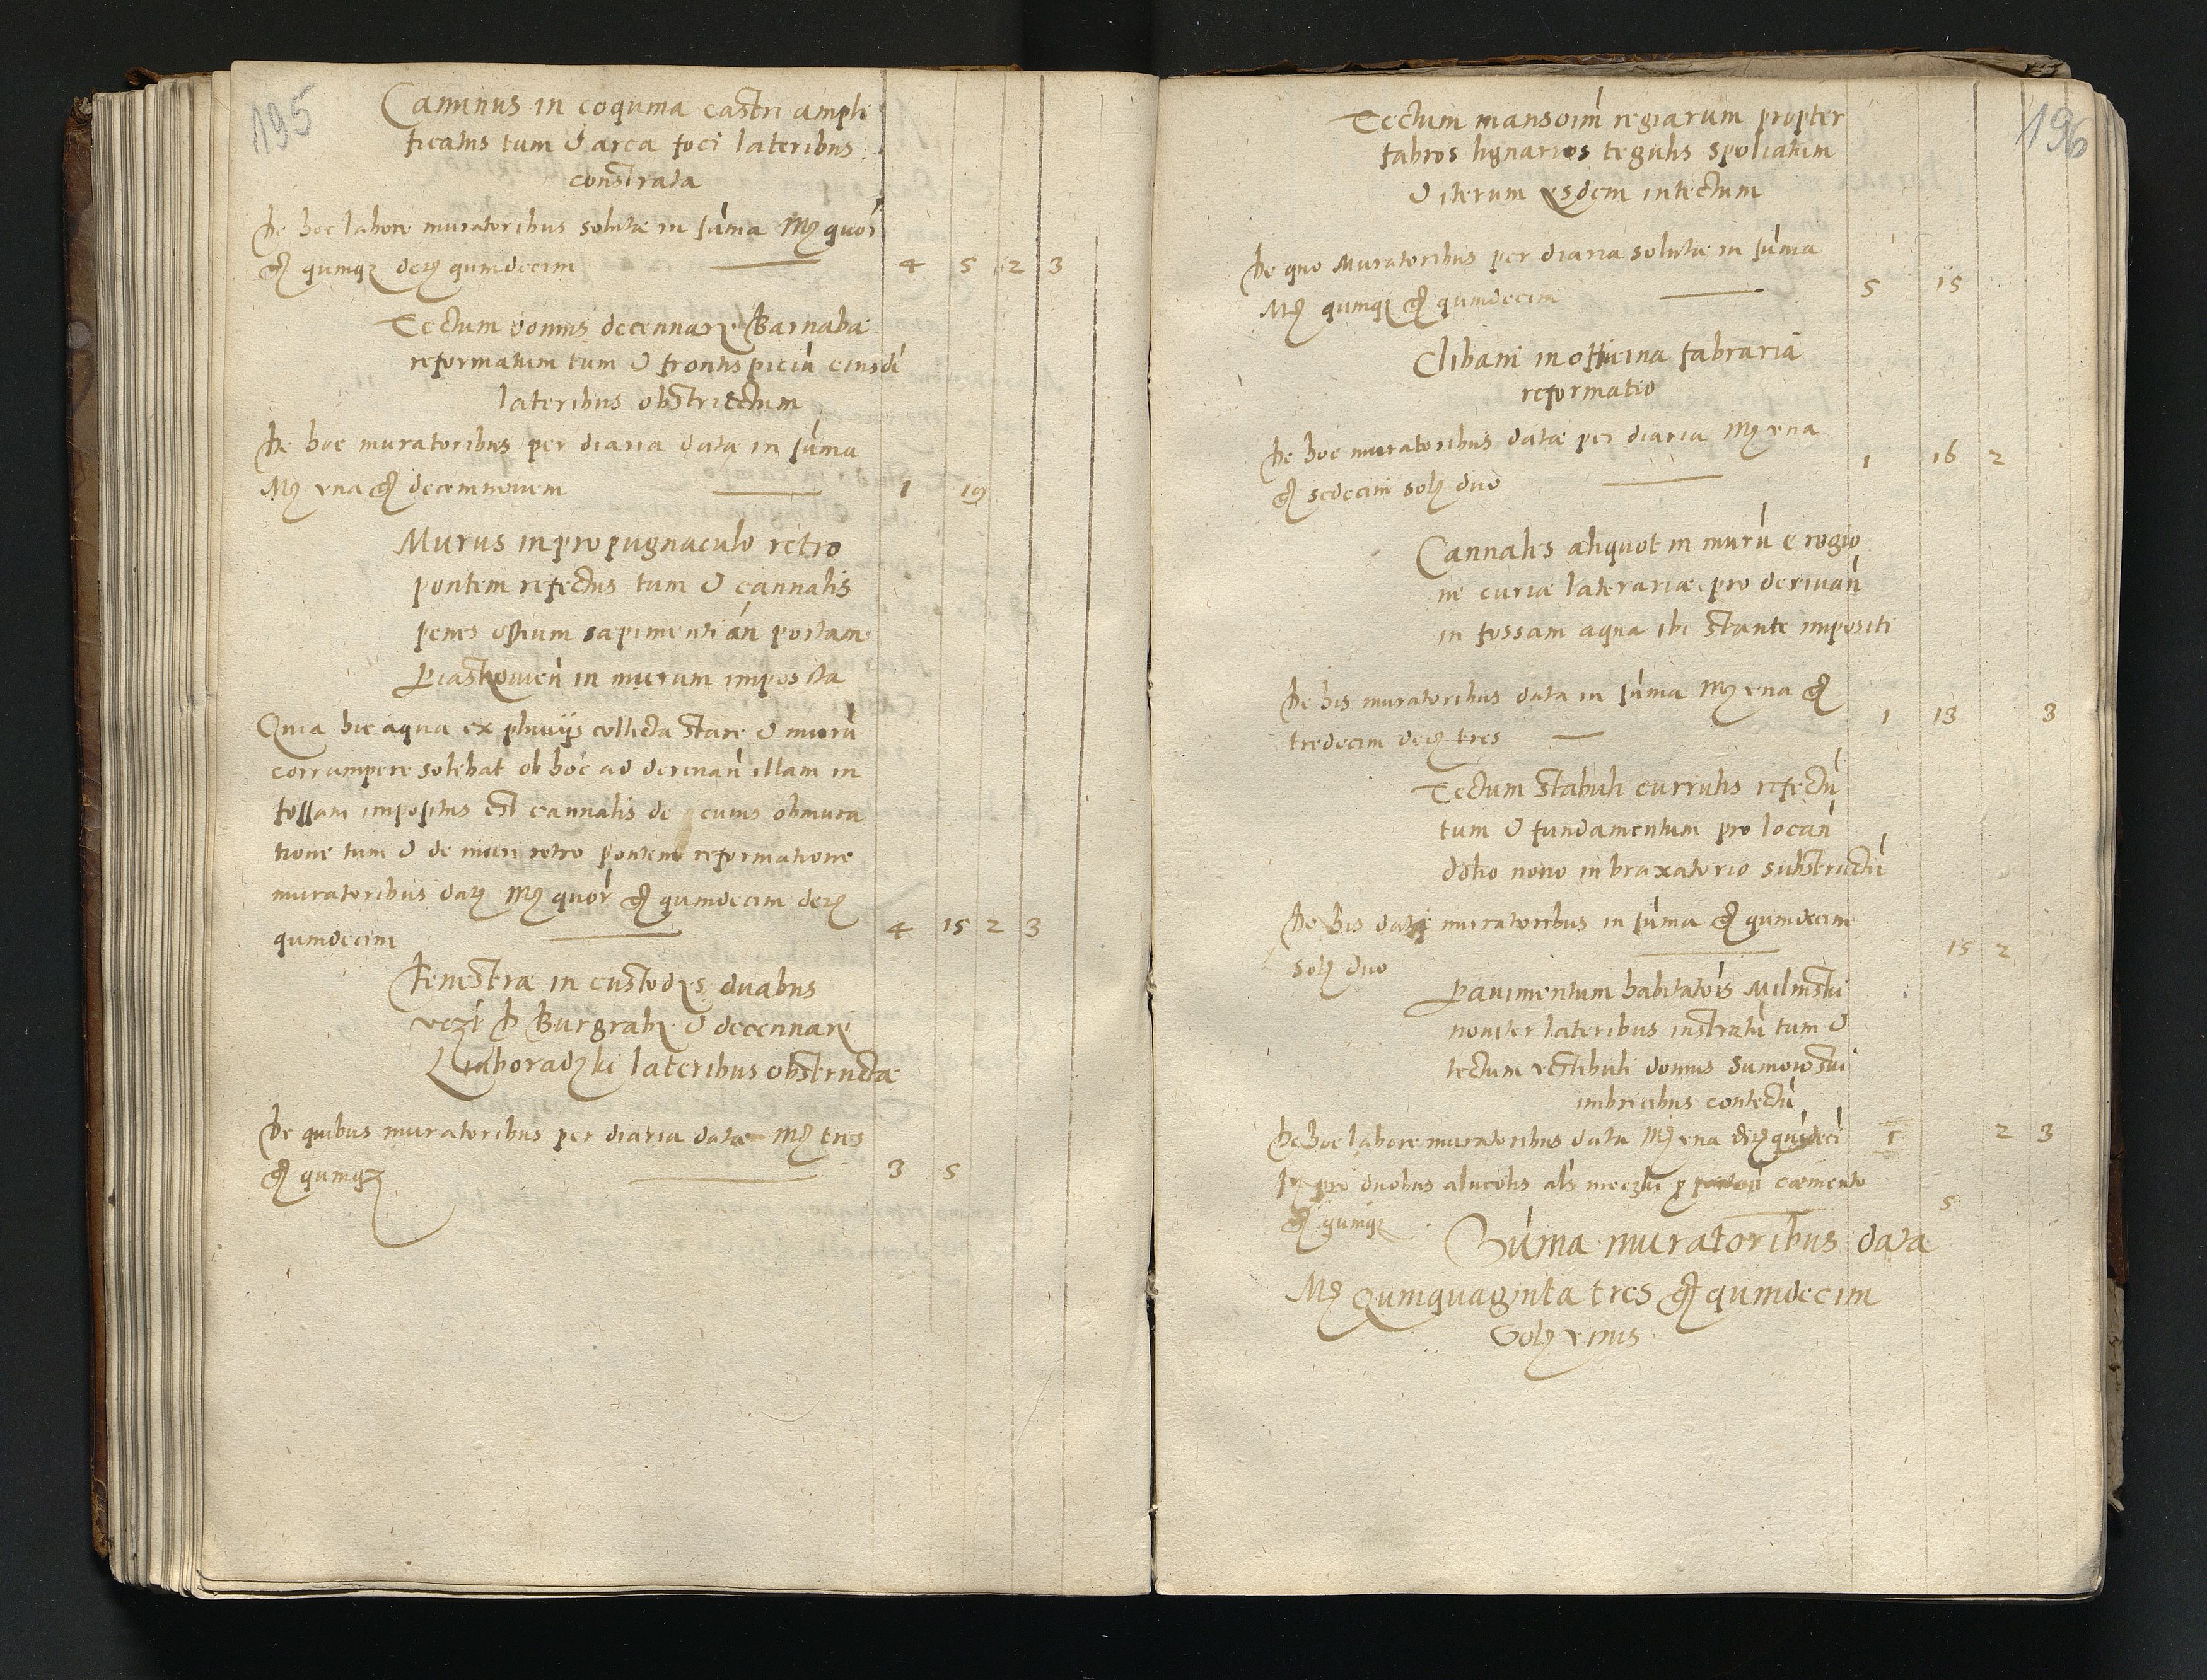 195
Caminus in coquina castri ampli
ficatus tum & area foci lateribus
constrata
De hoc labore muratoribus solutæ in suma Mr̃ quor
gr̃ quinqz deñ quindecim — 4 5 2 3
Tectum domus decennarij Barnabæ
reformatum tum & frontispiciu eiusdē
lateribus obstructum
De hoc muratoribus per diaria datæ in suma
Mr̃ vna gr̃ decemnouem — 1 19
Murus in propugnaculo retro
pontem refectus tum & cannalis
penes ostium
in murum imposita
Quia hic aqua ex pluuijs collecta stare & murū
corrumpere solebat ob hoc ad deriuan illam in
fossam impositus est cannalis de cuius obmura
tione tum & de muri retro pontem reformatione
muratoribus datæ Mr̃ quor gr̃ quindecim deñ
quindecim — 4 15 2 3
Fenestræ in custodijs duabus
D Burgrabij & decennarij
lateribus obstructæ
De quibus muratoribus per diaria datæ Mr̃ tres
gr̃ quinqz — 3 5
196
Tectum mansoim regiarum propter
fabros lignarios tegulis spoliatum
& iterum eisdem intectum
De quo Muratoribus per diaria solutæ in suma
Mr̃ quinqz gr̃ quindecim — 5 15
Clibani in officina fabraria
reformatio
De hoc muratoribus datæ per diaria Mr̃ vna
gr̃ sedecim sol duo — 1 16 2
Cannales aliquot in murū e regio
ne curiæ laterariæ pro deriuan
in fossam aqua ibi stante impositi
De his muratoribus data in suma Mr̃ vna gr̃
tredecim deñ tres — 1 13 3
Tectum stabuli currulis refectū
tum & fundamentum pro locan
dolio nouo in braxatorio substructū
De his datæ muratoribus in suma gr̃ quindecim
sol duo — 15 2
Pauimentum habitatois Milinski
nouiter lateribus instratū tum &
tectum vestibuli domus
imbricibus contectū
De hoc labore muratoribus data Mr̃ vna deñ quideci 1 2 3
It pro duobus alueolis als neczki p cæmento
gr̃ quinqz 5
Suma muratoribus data
Mr̃ Quinquaginta tres gr̃ quindecim
Sol vnus